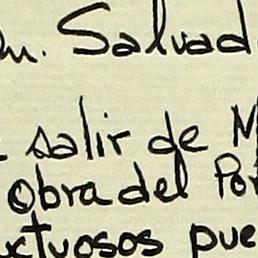 m. Salvad
salir de M
Obra del Por
uctuosos pue